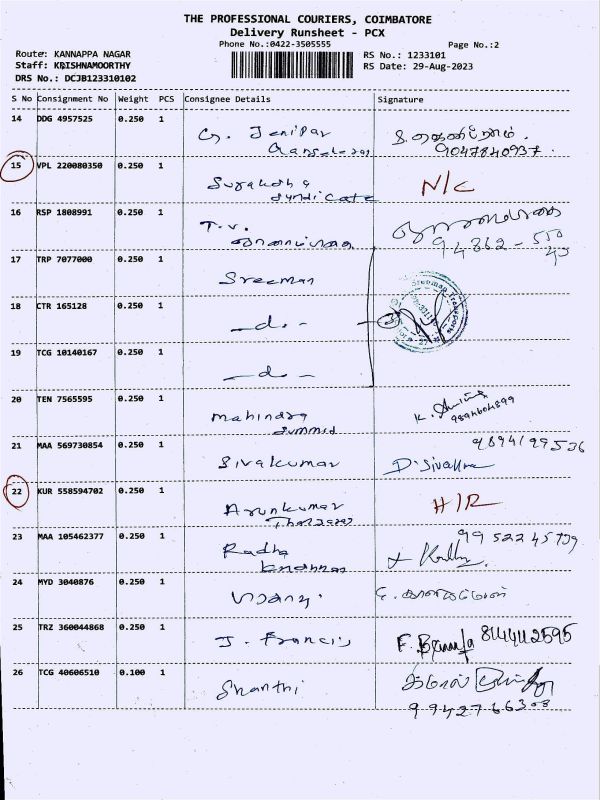 THE PROFESSIONAL COURIERS, COIMBATORE
Delivery Runsheet - PCX
Phone No.:0422-3505555
Page No.:2
Route: KANNAPPA NAGAR
RS No.: 1233101
Staff: KRISHNAMOORTHY
RS Date: 29-Aug-2023
DRS No.: DCJB123310102
S No Consignment No Weight PCS Consignee Details Signature
14 DDG 4957525 0.250 1 G. Jenipar
9047840937
15 VPL 220080350 0.250 1 N/C
Syndicate
16 RSP 1808991 0.250 1 T.V.
17 TRP 7077000 0.250 1 Sreeman
18 CTR 165128 0.250 1 —d.—
19 TCG 10140167 0.250 1 —d.—
20 TEN 7565595 0.250 1 Mahindra K.
Summit 9894604899
9894199536
21 MAA 569730854 0.250 1 Sivakumar D. Sivakumar
22 KUR 558594702 0.250 1 Arunkumar H/R
23 MAA 105462377 0.250 1 Radha
24 MYD 3040876 0.250 1
25 TRZ 360044868 0.250 1 J. Francis F. 8144112595
26 TCG 40606510 0.100 1 Shanthi
9942766308